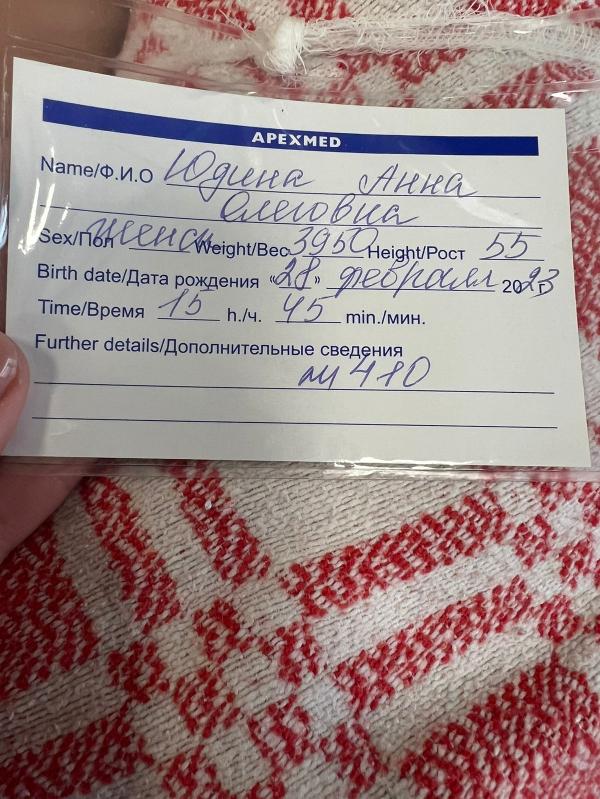 APEXMED
Name/Ф.И.О Юдина Анна
Олеговна
Sex/Пол женск Weight/Вес 3950 Height/Рост 55
Birth date/Дата рождения «28» февраля 2023 г.
Time/Время 15 h./ч. 45 min./мин.
Further details/Дополнительные сведения
480